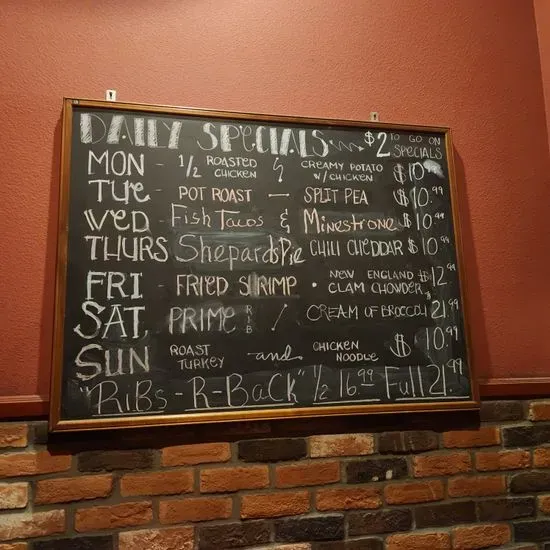 DAILY SPECIALS $2 TO GO ON SPECIALS
MON - 1/2 ROASTED CHICKEN & CREAMY POTATO W/CHICKEN $10
TUE - POT ROAST — SPLIT PEA $10.99
WED - Fish Tacos & Minestrone $10.99
THURS Shepards Pie CHILI CHEDDAR $10.99
FRI - FRIED SHRIMP • NEW ENGLAND CLAM CHOWDER $12.99
SAT, PRIME RIB / CREAM OF BROCCOLI 21.99
SUN ROAST TURKEY and CHICKEN NOODLE $10.99
"RiBs - R-BacK" 1/2 16.99 Full 21.99